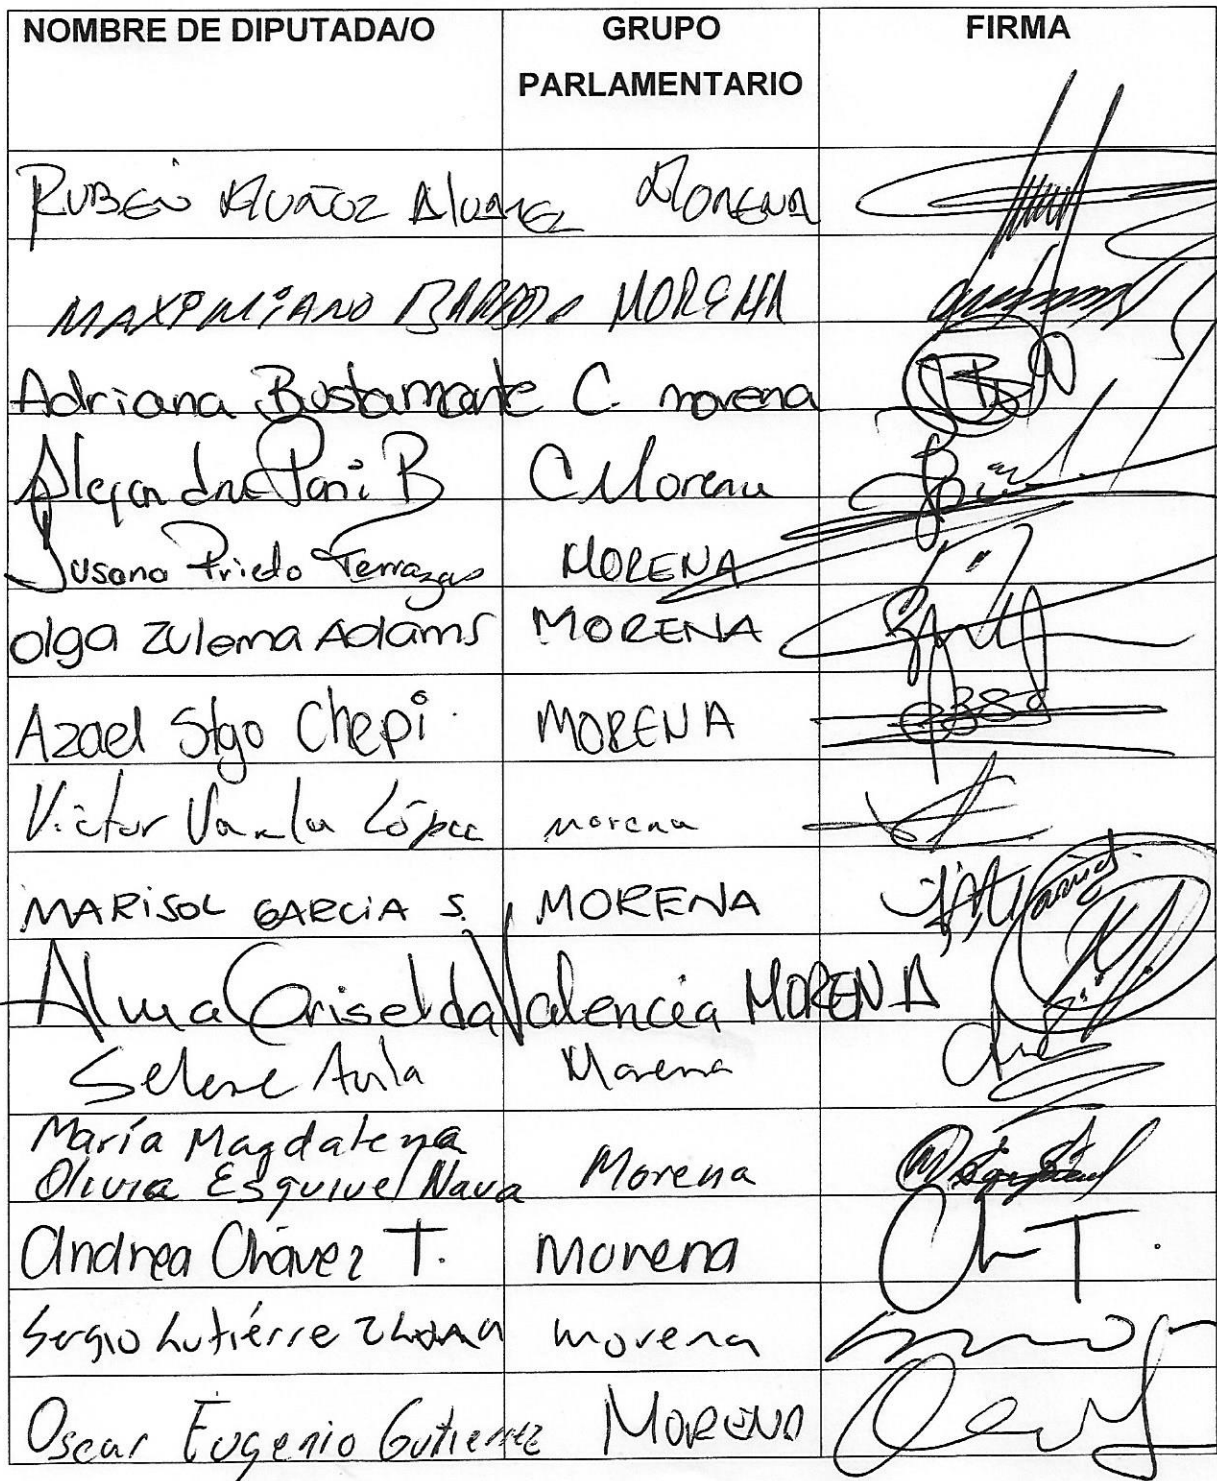 NOMBRE DE DIPUTADA/O GRUPO PARLAMENTARIO FIRMA
RUBEN MUÑOZ ALVAREZ MORENA
MAXIMIANO BARBOSA MORENA
Adriana Bustamante C. morena
Alejandra Pani B Morena
Susana Prieto Terrazas MORENA
Olga Zulema Adams MORENA
Azael Stgo Chepi MORENA
Victor Varela López morena
MARISOL GARCIA S. MORENA
Alma Griselda Valencia MORENA
Selene Avila Morena
María Magdalena
Olivia Esquivel Nava Morena
Andrea Chávez T. Morena
Sergio Gutiérrez Luna morena
Oscar Eugenio Gutierrez MORENA